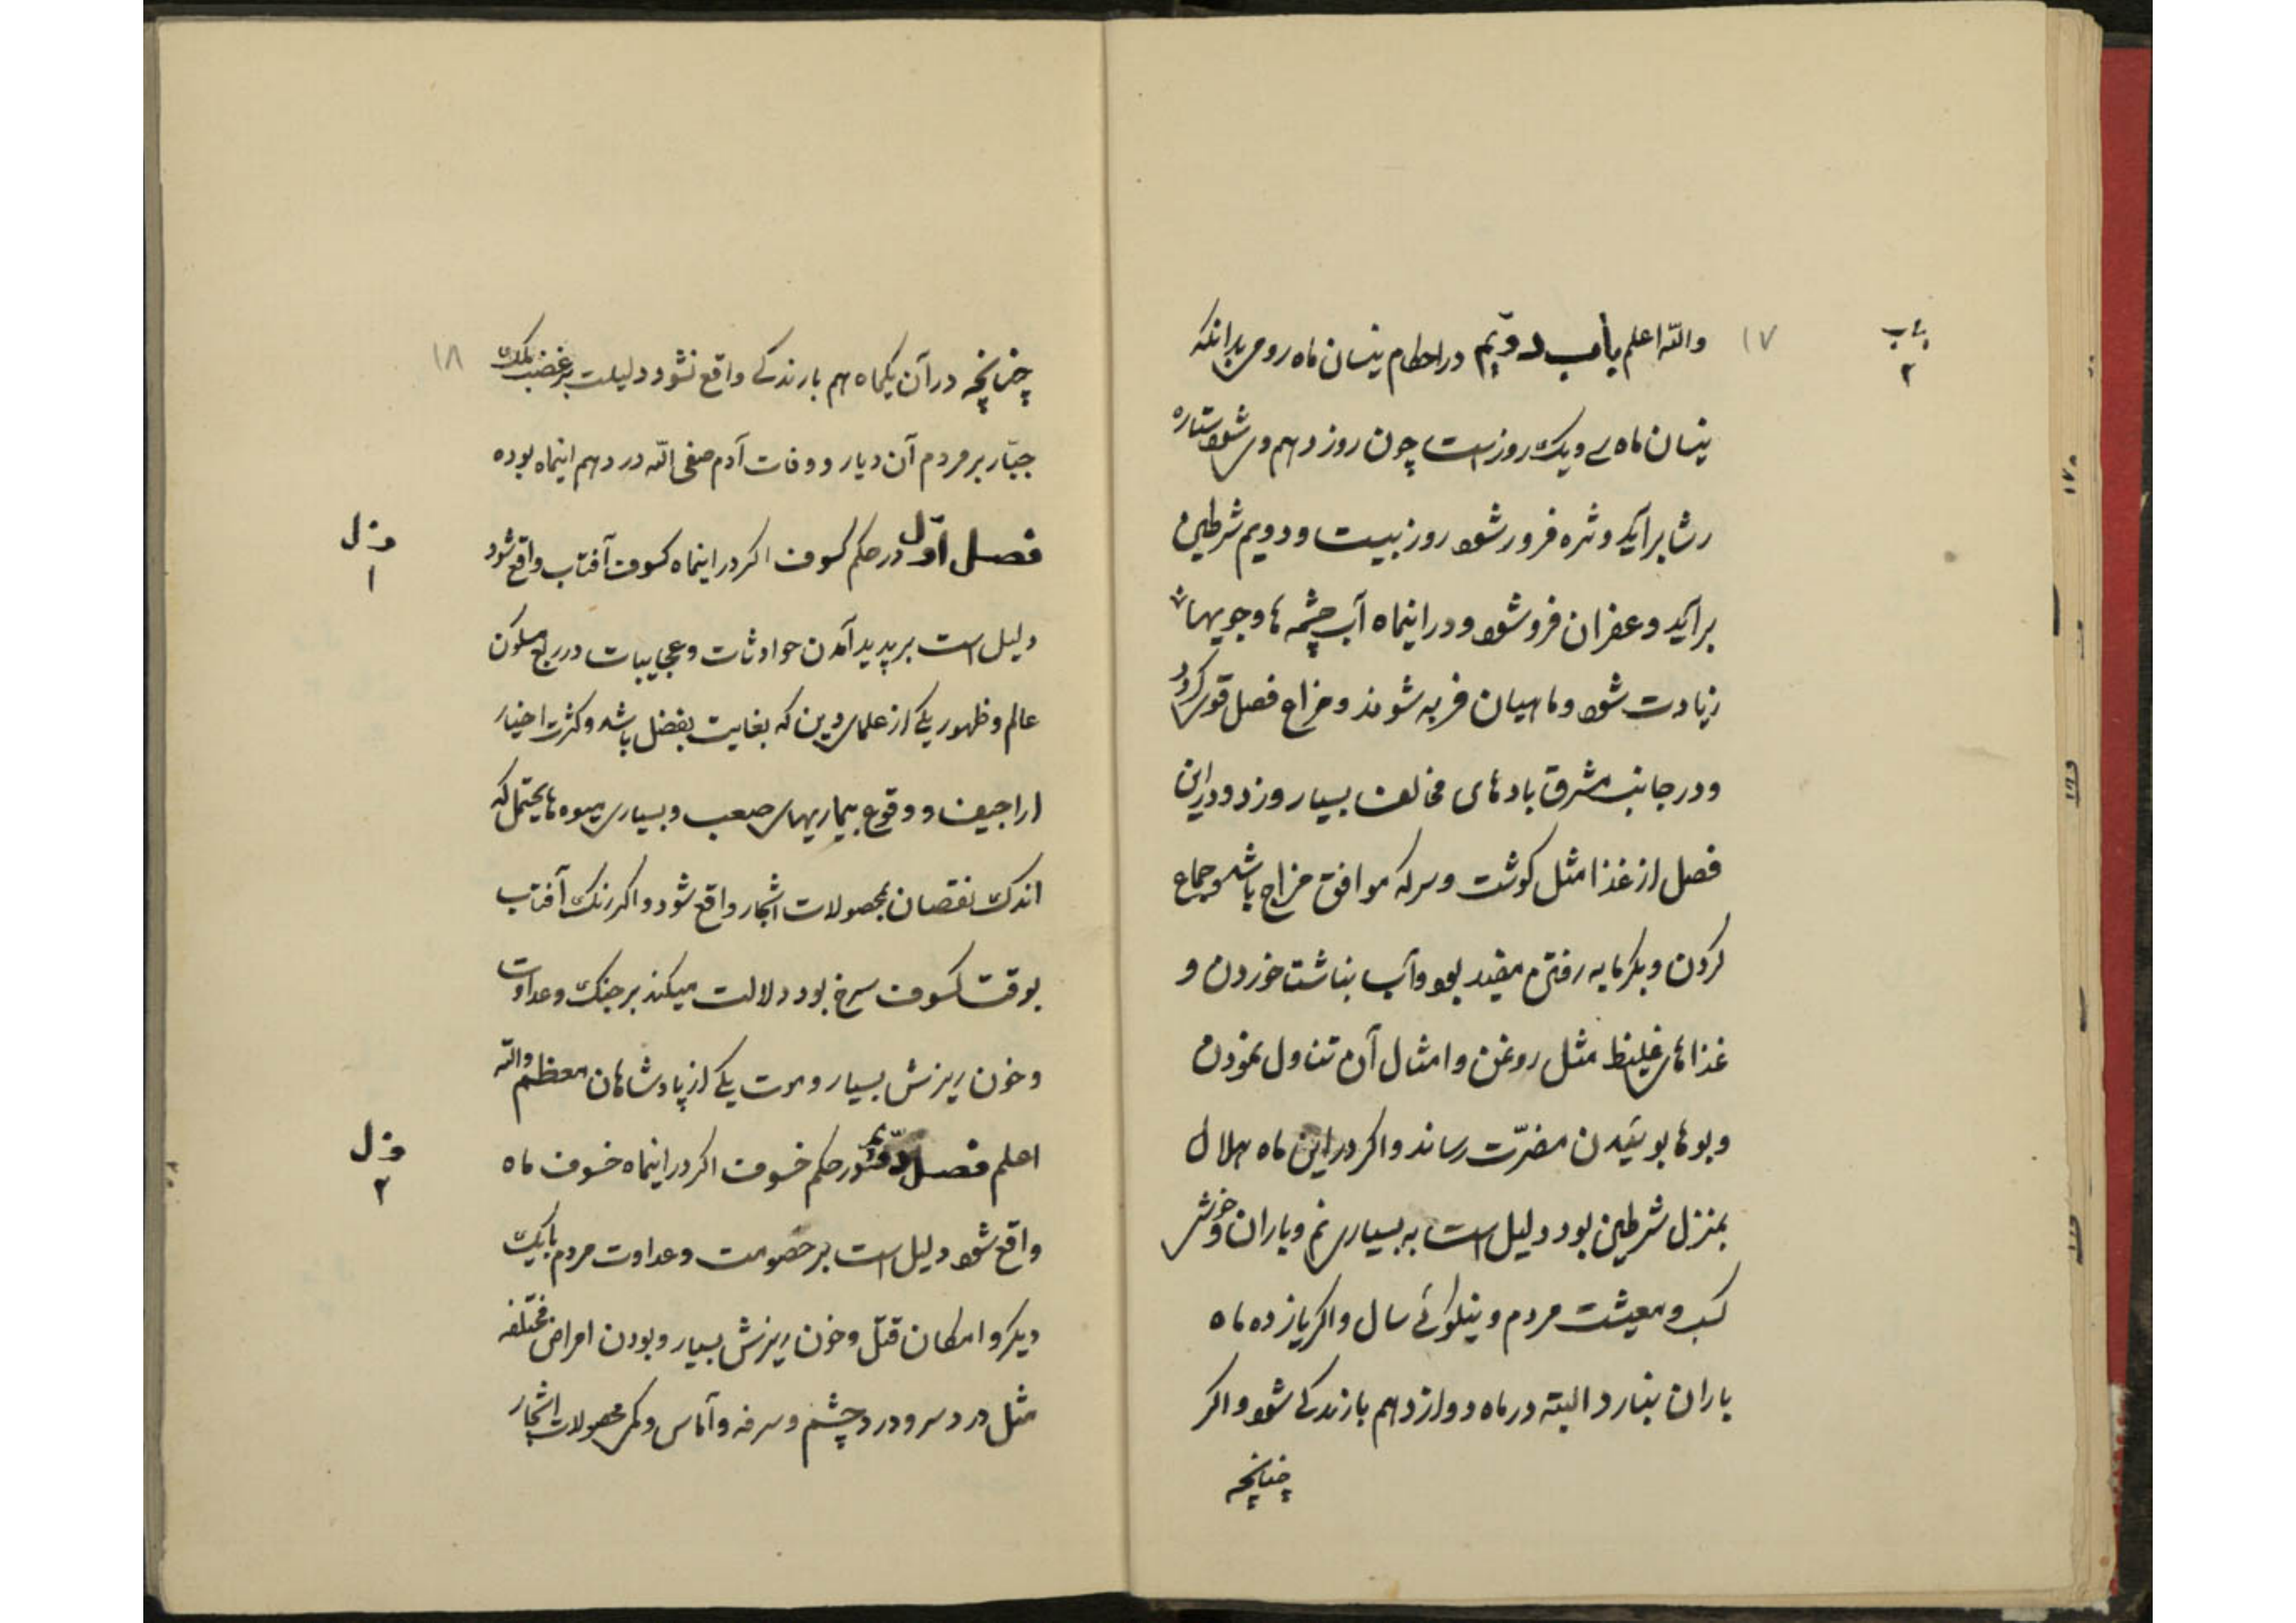 باب
۲
۱۷
واللّه اعلم باب دوّیم در احکام نیسان ماه رومی بدانکه
نیسان ماه سی و یک روز است چون روز دهم وی شود ستاره
رشا برآید و ثره فرو رشود روز بیست و دویم شرطین
برآید و عفران فرو شود و در اینماه آب چشمه ها و جویها
زیادت شود و ماهیان فربه شوند و مزاج فصل قوی کردد
و در جانب مشرق بادهای مخالف بسیار وزد و در این
فصل از غذا مثل کوشت و سرکه موافق مزاج باشد و جماع
کردن و بکرمابه رفتن مفید بود و آب بناشتا خوردن و
غذاهای غلیظ مثل روغن و امثال آن تناول نمودن
و بوها بوئیدن مضرّت رساند و اکر در این ماه هلال
بمنزل شرطین بود دلیل است به بسیاری نم و باران و خوشی
کسب و معیشت مردم و نیکوئی سال و اکر یازده ماه
باران نبارد البته در ماه دوازدهم بارندکی شود و اکر
چنانچه
۱۸
چنانچه در آن یکماه هم بارندکی واقع نشود دلیلست بر غضب ملک
جبّار بر مردم آن دیار و وفات آدم صفی اللّه در دهم اینماه بوده
فصل اوّل در حکم کسوف اکر در اینماه کسوف آفتاب واقع شود
فصل
۱
دلیل است بر پدید آمدن حوادثات و عجایبات در ربع مسکون
عالم و ظهور یکی از علمای دین که بغایت بفضل باشد و کثرت اخبار
اراجیف و وقوع بیماریهای صعب و بسیاری میوه ها یحتمل که
اندک نقصان بمحصولات اشجار واقع شود و اکر رنک آفتاب
بوقت کسوف سرخ بود دلالت میکند بر جنک و عداوت
و خون ریزش بسیار و موت یکی از پادشاهان معظم واللّه
اعلم فصل دوّیم در حکم خسوف اکر در اینماه خسوف ماه
فصل
۲
واقع شود دلیل است بر خصومت و عداوت مردم با یک
دیکر و امکان قتل و خون ریزش بسیار و بودن امراض مختلفه
مثل درد سر و درد چشم و سرفه و آماس و کمی محصولات اشجار